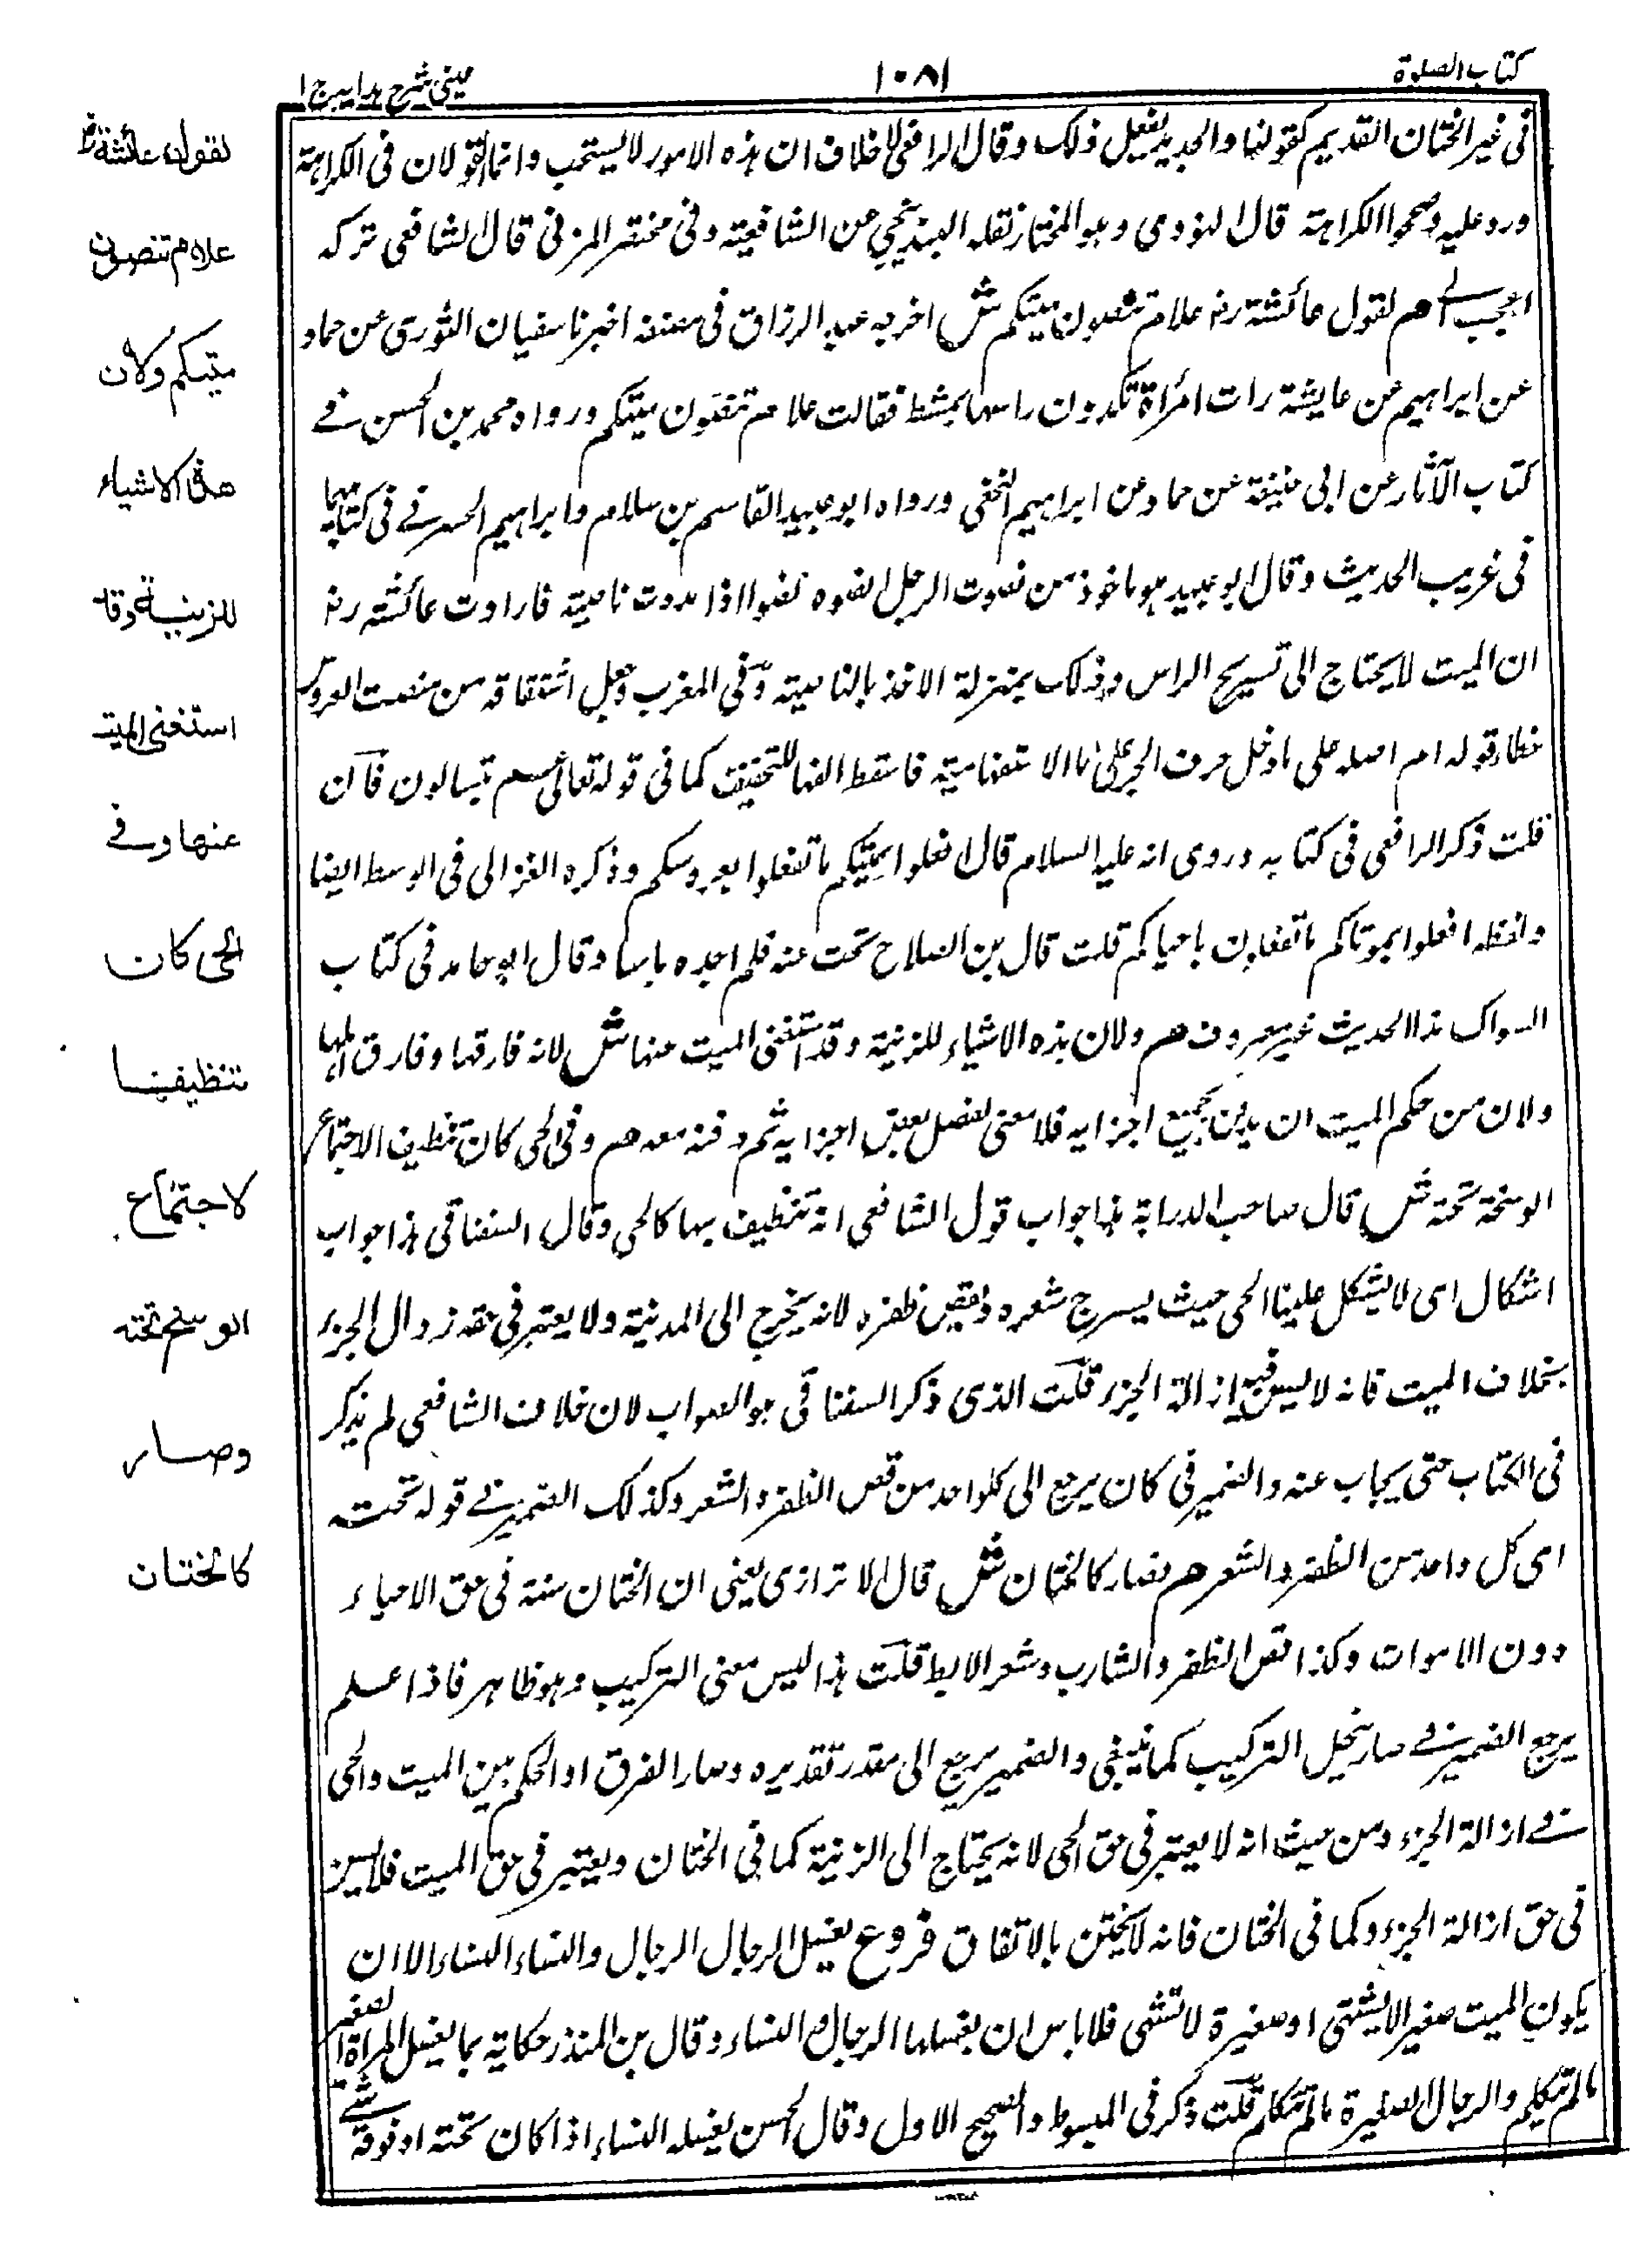 كتاب الصلوة
١٠٨١
عينى شرح هدايه ج ١
فى غير الختان القديم كقولنا والجديد يفعل ذلك وقال الرافعى لا خلاف ان هذه الامور لا يستحب وانما القولان فى الكراهة
ورد عليه وصححوا الكراهة قال النووى وهو المختار نقله البندنيجى عن الشافعية وفى مختصر المزنى قال الشافعى تركه
اعجب الى هم لقول عائشة رضـ علام تنصون ميتكم ش اخرجه عبد الرزاق فى مصنفه اخبرنا سفيان الثورى عن حماد
عن ابراهيم عن عايشة رات امرأة تكدون راسها بمشط فقالت علام تنصون ميتكم ورواه محمد بن الحسن فى
كتاب الآثار عن ابى حنيفة عن حماد عن ابراهيم النخعى ورواه ابو عبيد القاسم بن سلام وابراهيم الحربى فى كتابيهما
فى غريب الحديث وقال ابو عبيد هو ماخوذ من نصوت الرجل انصوه نصوا اذا مددت ناصيته فارادت عائشة رضـ
ان الميت لا يحتاج الى تسريح الراس وذلك بمنزلة الاخذ بالناصية وفى المغرب وجعل اشتقاقه من منصة العروس
خطا قوله ام اصله على ما دخل حرف الجر على ما الاستفهامية فاسقط الفها للتخفيف كما فى قوله تعالى عم يتسالون فآن
قلت ذكر الرافعى فى كتابه وروى انه عليه السلام قال افعلوا بميتكم ما تفعلوا بعروسكم وذكره الغزالى فى الوسط ايضا
ولفظه افعلوا بموتاكم ما تفعلون باحياكم قلت قال بن الصلاح بحثت عنه فلم اجده باسا وقال ابو حامد فى كتاب
السواك هذا الحديث غير معروف هم ولان هذه الاشياء للزينة وقد استغنى الميت عنها ش لانه فارقها وفارق اهلها
ولان من حكم الميت ان يدفن بجميع اجزايه فلا معنى لفصل بعض اجزايه ثم دفنه معه هم وفى الحى كان تنظيف الاجتماع
الوسخ تحته ش قال صاحب الدراية هذا جواب قول الشافعى انه تنظيف بها كالحى وقال السغناقى هذا جواب
اشكال اى لا يشكل علينا الحى حيث يسرح شعره ويقص ظفره لانه يخرج الى المدنية ولا يعتبر فى حقه زوال الجزء
بخلاف الميت فانه لا يسن فيه ازالة الجزء قلت الذى ذكر السغناقى هو الصواب لان خلاف الشافعى لم يذكر
فى الكتاب حتى يجاب عنه والضمير فى كان يرجع الى كل واحد من قص الظفر والشعر وكذلك الضمير فى قوله تحته
اى كل واحد من الظفر والشعر هم فصار كالختان ش قال الاترازى يعنى ان الختان سنة فى حق الاحياء
دون الاموات وكذا قص الظفر والشارب وشعر الابط قلت هذا ليس معنى التركيب وهو ظاهر فاذا علم
يرجع الضمير فى صار ينحل التركيب كما ينبغى والضمير يرجع الى مقدر تقديره وصار الفرق او الحكم بين الميت والحى
فى ازالة الجزء ومن حيث انه لا يعتبر فى حق الحى لانه يحتاج الى الزينة كما فى الختان ويعتبر فى حق الميت فلا يسن
فى حق ازالة الجزء وكما فى الختان فانه لا يختن بالاتفاق فروع يغسل الرجال الرجال والنساء النساء الا ان
يكون الميت صغيرا لا يشتهى او صغيرة لا تشتهى فلا باس ان يغسلها الرجال والنساء وقال بن المنذر حكاية بما يغسل المراة الصغير
ما لم يتكلم والرجال الصغيرة ما لم تتكلم قلت ذكر فى المبسوط والصحيح الاول وقال الحسن يغسله النساء اذا كان تحته او فوقه شئ
لقول عائشة رض
علام تنصون
ميتكم ولان
هذه الاشياء
للزينة وقد
استغنى الميت
عنها وفى
الحى كان
تنظيفا
لاجتماع
الوسخ تحته
وصار
كالختان